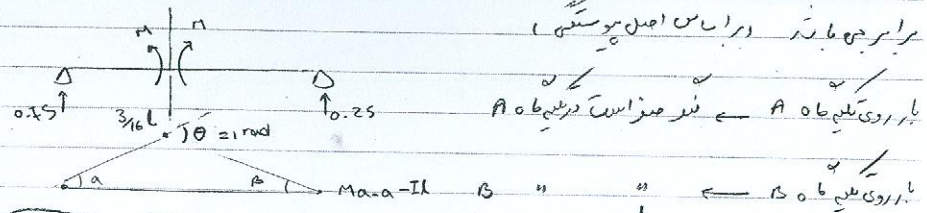 برابر می باشد (بر اساس اصل پیوستگی)
M M
0.75 3/16 L 0.25
بار روی تکیه گاه A ← لنگر صفر است در تکیه گاه A
θ = 1 rad
a B Ma.a-IL
بار روی تکیه گاه B ← " " B